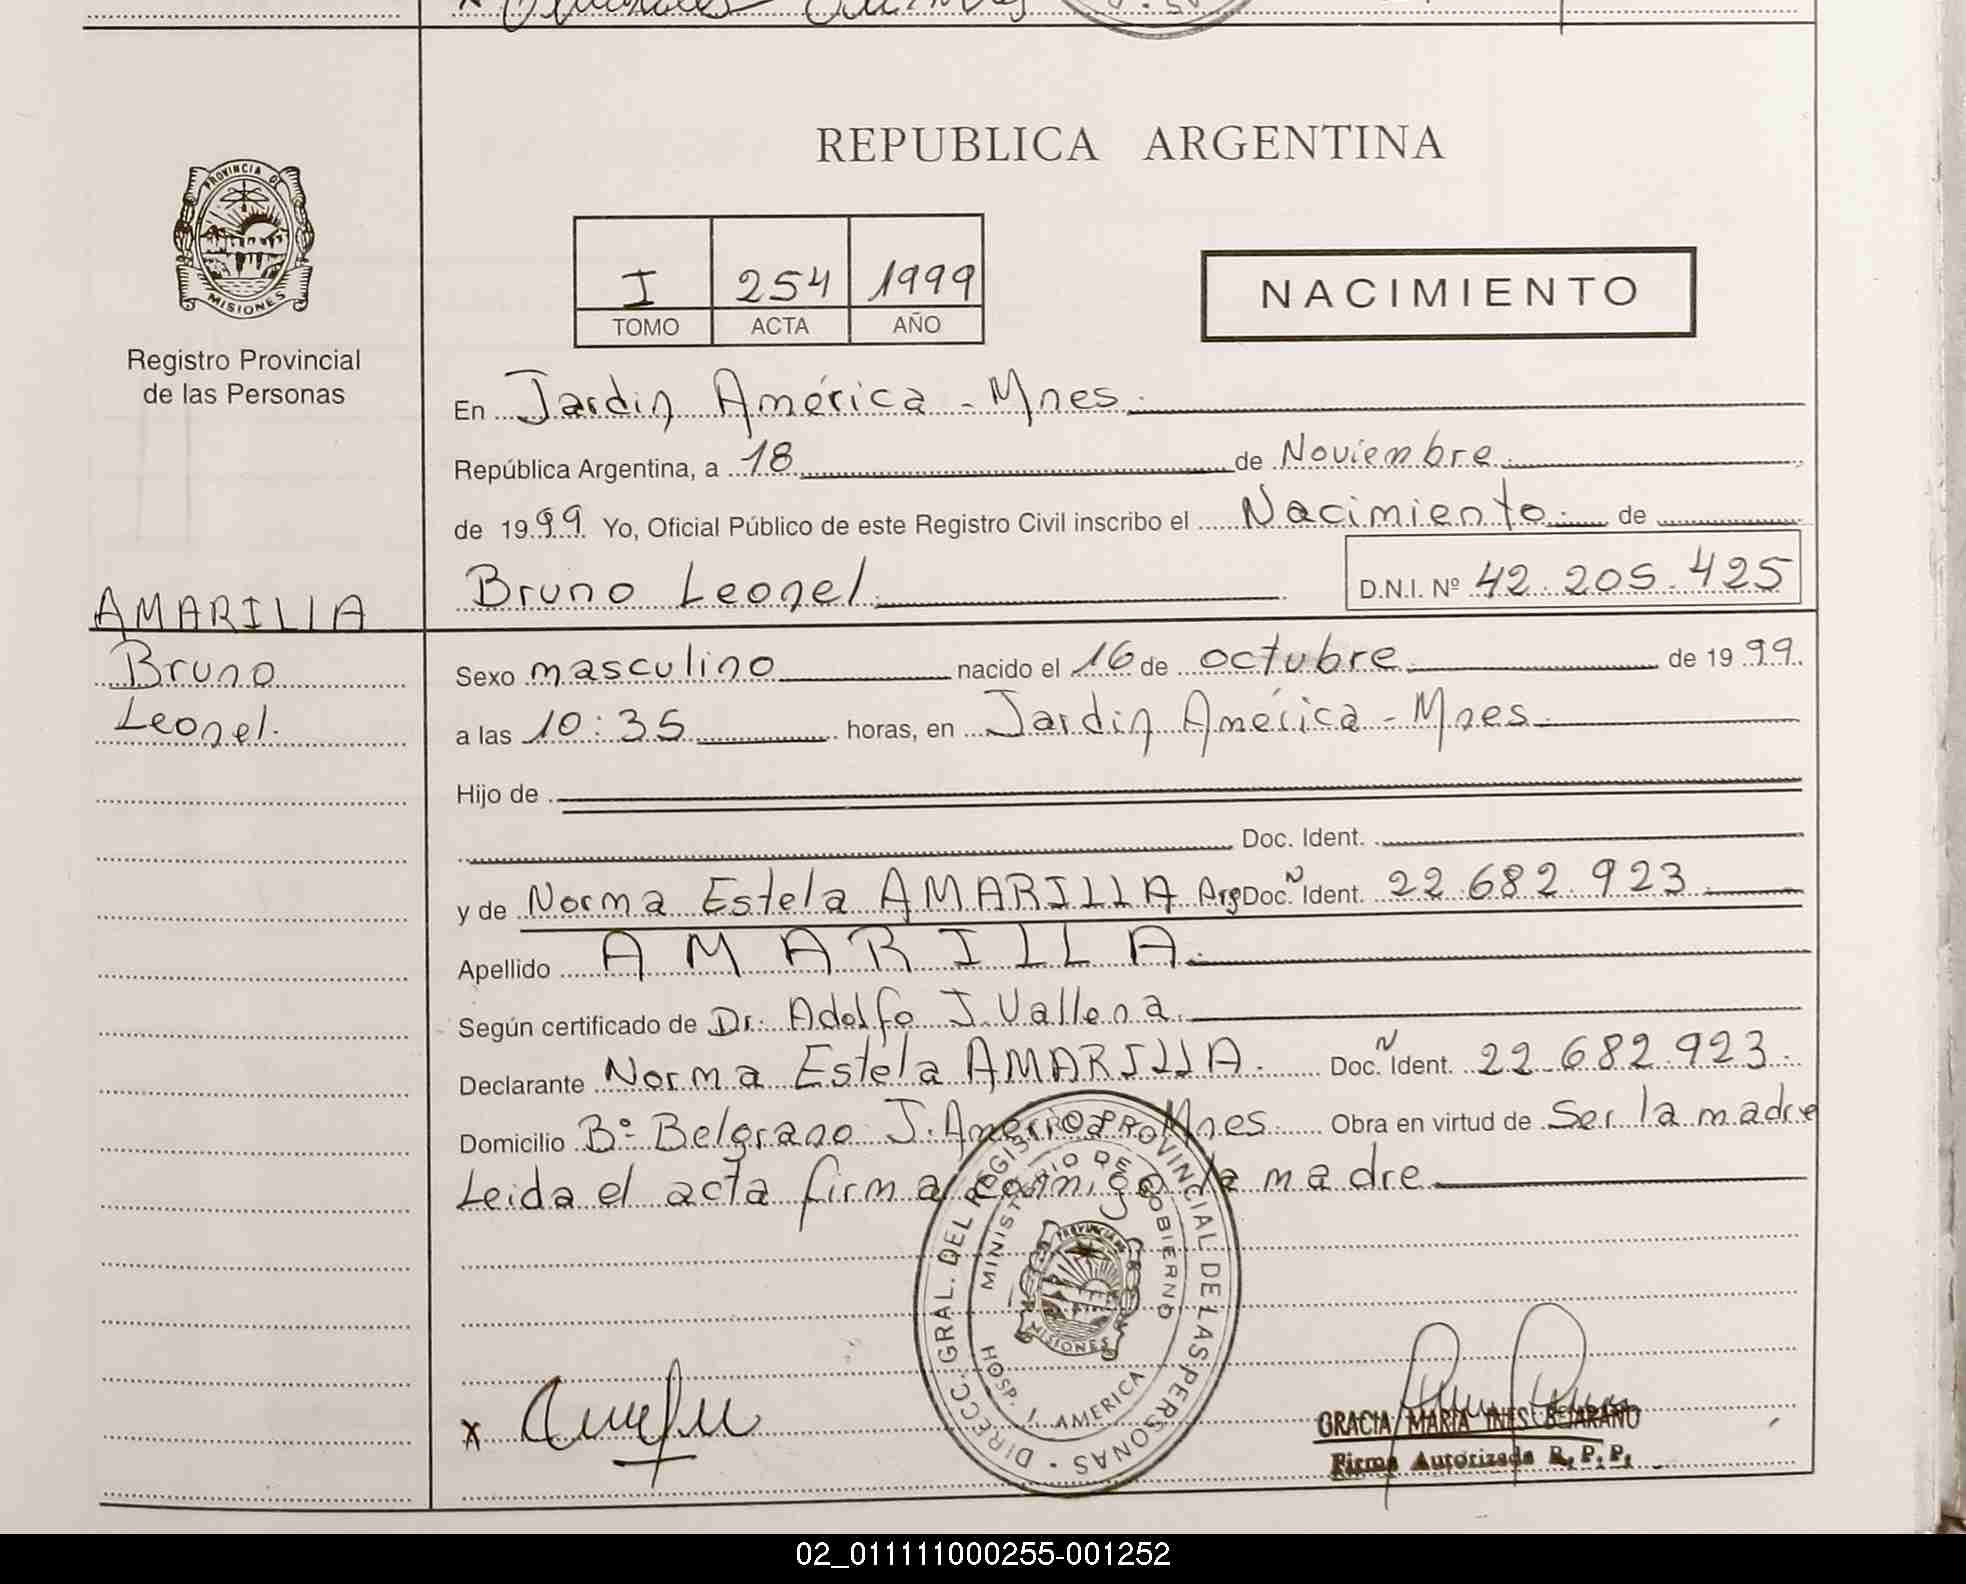 REPUBLICA ARGENTINA
PROVINCIA DE
MISIONES
Registro Provincial
de las Personas
I 254 1999
TOMO ACTA AÑO
NACIMIENTO
En Jardin América - Mnes.
República Argentina, a 18 de Noviembre
de 1999 Yo, Oficial Público de este Registro Civil inscribo el Nacimiento de
Bruno Leonel D.N.I. Nº 42.205.425
AMARILLA
Bruno
Leonel.
Sexo masculino nacido el 16 de octubre de 1999.
a las 10:35 horas, en Jardin América - Mnes.
Hijo de
Doc. Ident.
y de Norma Estela AMARILLA Arg Doc. N Ident. 22.682.923
Apellido AMARILLA.
Según certificado de Dr. Adolfo J. Vallena
Declarante Norma Estela AMARILLA. Doc. N Ident. 22.682.923.
Domicilio Bº Belgrano J. America Mnes. Obra en virtud de Ser la madre
Leida el acta firma conmigo la madre
DIRECC. GRAL. DEL REGISTRO PROVINCIAL DE LAS PERSONAS
MINISTERIO DE GOBIERNO
PROVINCIA DE
MISIONES
HOSP. J. AMERICA
x
GRACIA MARIA INES BEJARANO
Firma Autorizada R. P. P.
02_011111000255-001252